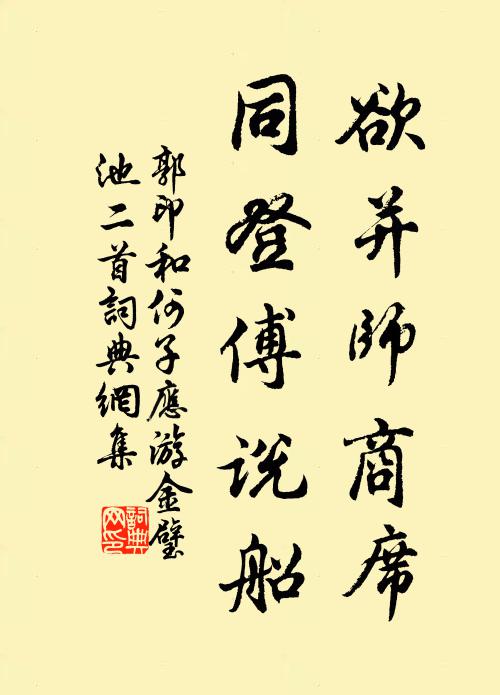 欲并師商席
同登傅説船
郭印和何子應游金璧
池二首詞典網集
詞典網印